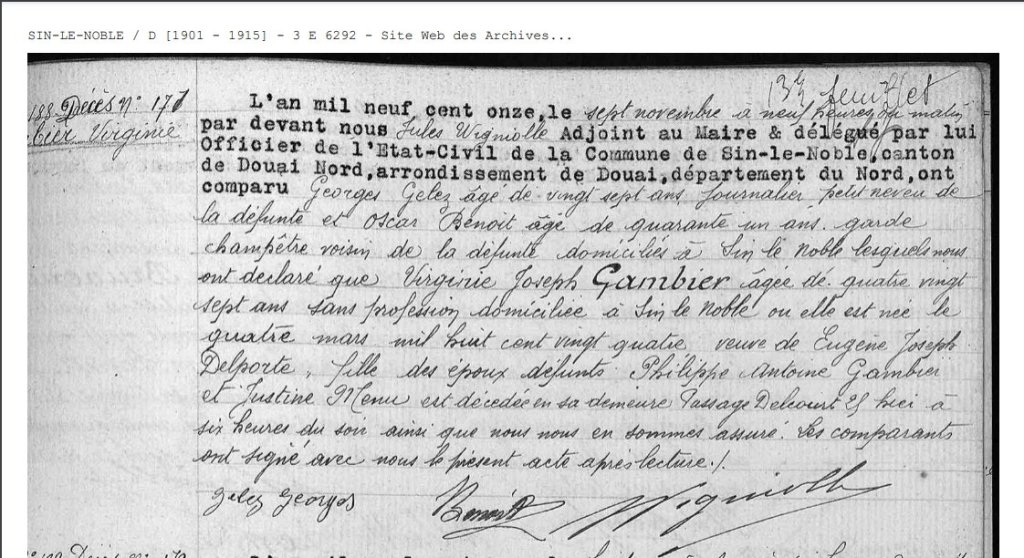 SIN-LE-NOBLE / D [1901 - 1915] - 3 E 6292 - Site Web des Archives...
feuillet
188 Décès N° 177
bier Virginie
L'an mil neuf cent onze, le sept novembre à neuf heures du matin
par devant nous Jules Wignolle Adjoint au Maire & délégué par lui
Officier de l'Etat-Civil de la Commune de Sin-le-Noble, canton
de Douai Nord, arrondissement de Douai, département du Nord, ont
comparu Georges Gelez âgé de vingt sept ans journalier, petit neveu de
la défunte et Oscar Benoit âgé de quarante un ans. garde
champêtre voisin de la défunte domiciliés à Sin le Noble lesquels nous
ont declaré que Virginie Joseph Gambier âgée de quatre vingt
sept ans sans profession domiciliée à Sin le Noble ou elle est née le
quatre mars mil huit cent vingt quatre veuve de Eugène Joseph
Delporte, fille des époux défunts Philippe Antoine Gambier
et Justine Menu est décédée en sa demeure Passage Delcourt 25 hier à
six heures du soir ainsi que nous nous en sommes assuré. Les comparants
ont signé avec nous le présent acte après lecture ./.
Gelez Georges Benoit Wignolle